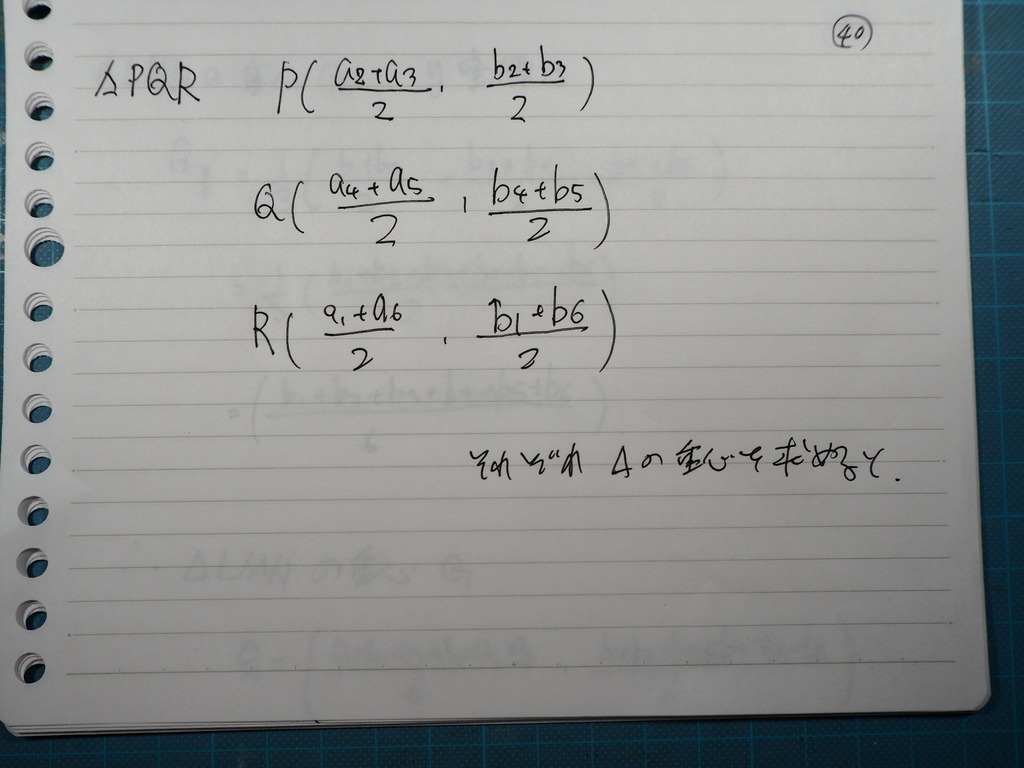 ㊵
△PQR P( a2+a3/2 , b2+b3/2 )
Q( a4+a5/2 , b4+b5/2 )
R( a1+a6/2 , b1+b6/2 )
それぞれ △の重心を求めると.